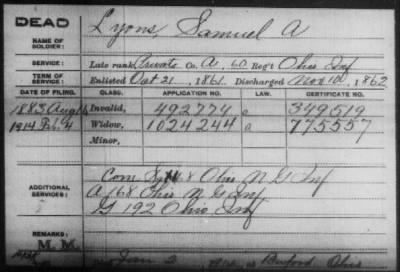 DEAD
NAME OF SOLDIER: Lyons, Samuel A
SERVICE: Late rank Private Co. A, 60 Reg't Ohio Inf
TERM OF SERVICE: Enlisted Oct 21, 1861. Discharged Nov 10, 1862
DATE OF FILING. CLASS. APPLICATION NO. LAW. CERTIFICATE NO.
1883 Aug Invalid, 492774 349519
1914 Feb. 4 Widow, 1024244 775557
Minor,
ADDITIONAL SERVICES: Com 8 Ohio N G Inf
A 168 Ohio N G Inf
G 192 Ohio Inf
REMARKS:
M. M.
Buford Ohio